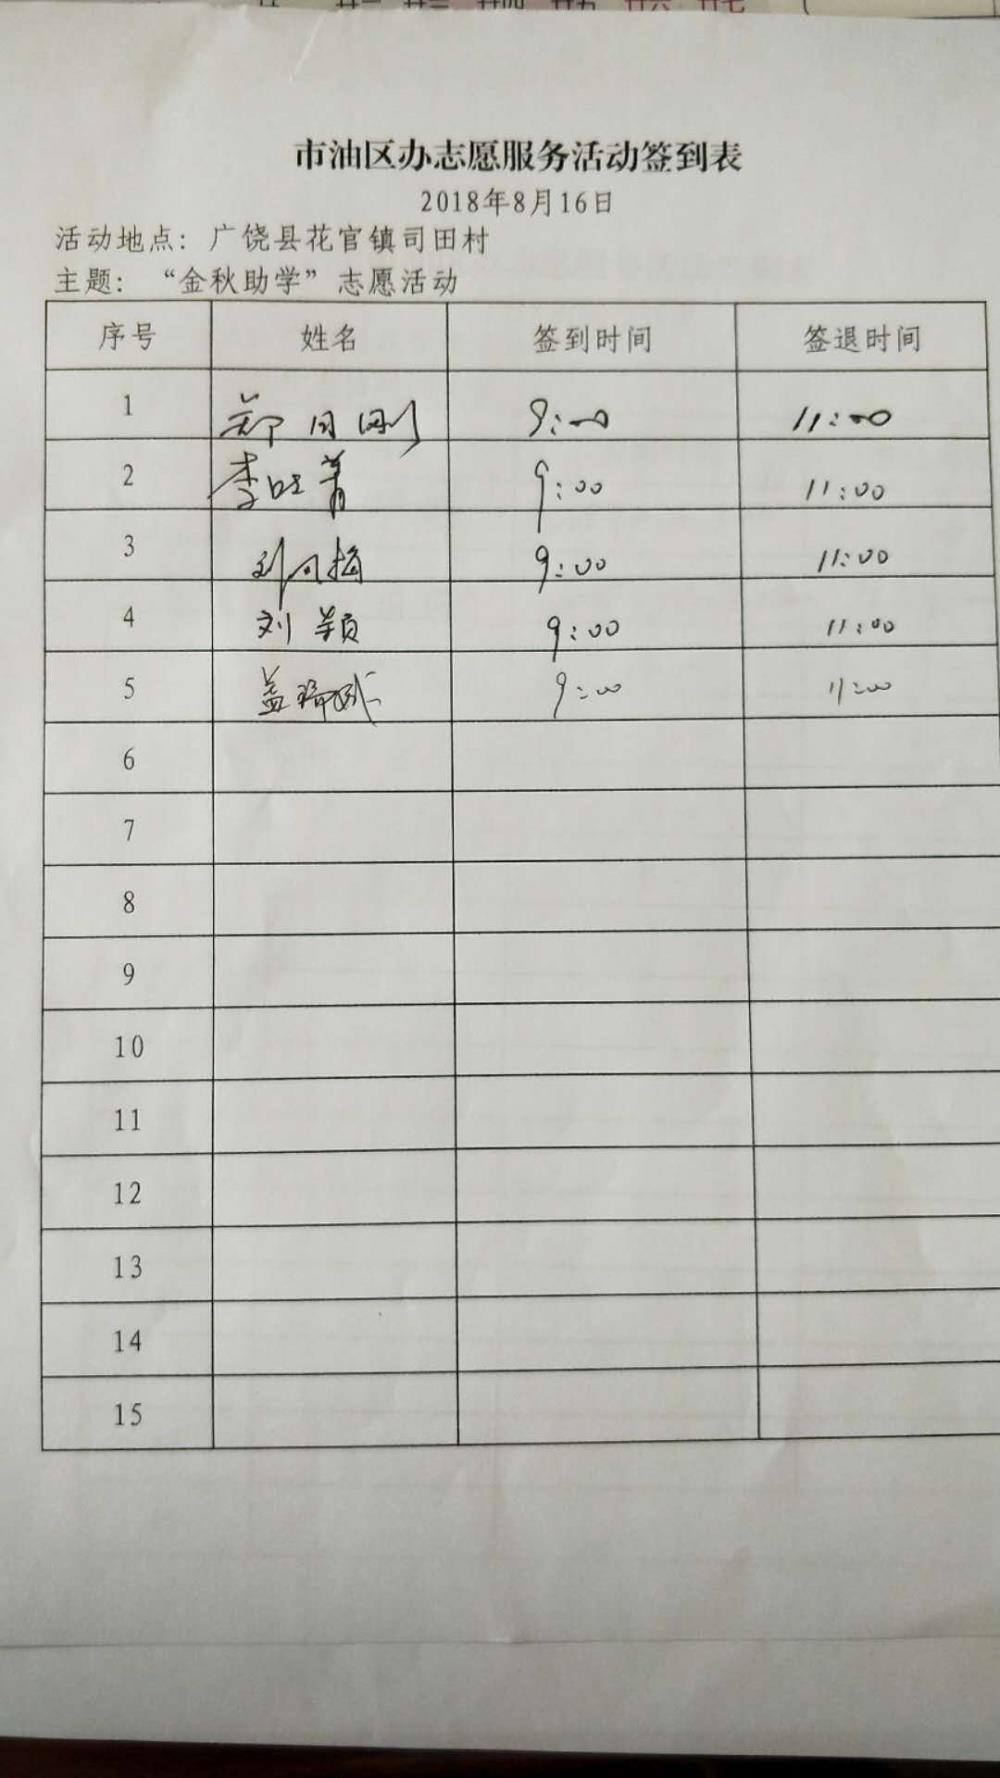 廿二 廿三 廿四 廿五 廿六 廿七
市油区办志愿服务活动签到表
2018年8月16日
活动地点：广饶县花官镇司田村
主题：“金秋助学”志愿活动
序号 姓名 签到时间 签退时间
1 郑 刚 9:00 11:00
2 李 9:00 11:00
3 梅 9:00 11:00
4 刘颖 9:00 11:00
5 盖 9:00 11:00
6
7
8
9
10
11
12
13
14
15